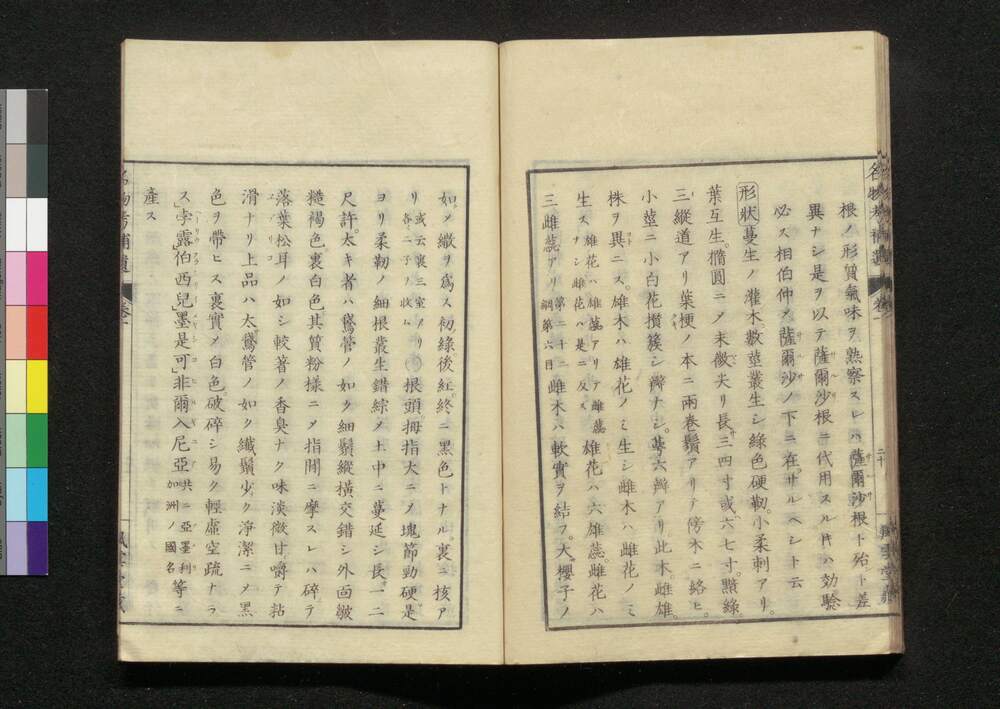 根ノ形質氣味ヲ熟察スレハ薩爾沙根ト殆ト差
異ナシ是ヲ以テ薩爾沙根ニ代用スル𪜈ハ効驗
必ス相伯仲メ薩爾沙ノ下ニ在サルヘシト云
形状蔓生ノ灌木數莖叢生シ緑色硬靭小柔刺アリ
葉互生橢圓ニメ末微尖リ長三四寸或六七寸黯緑
三縱道アリ葉梗ノ本ニ兩卷鬚アリテ傍木ニ絡ヒ
小莖ニ小白花攢簇シ瓣ナシ萼六瓣アリ此木雌雄
株ヲ異ニス雄木ハ雄花ノミ生シ雌木ハ雌花ノミ
生ス雄花ハ雄蕋アリテ雌蕋ナシ雌花ハ是ニ反ス雄花ハ六雄蕊雌花ハ
三雌蕊アリ第二十二綱第六目雌木ハ軟實ヲ結フ大櫻子ノ
如メ纖ヲ爲ス初緑後紅終ニ黒色トナル裏ニ核ア
リ或云裏三室メ各二子ヲ收ム根頭拇指大ニメ塊節勁硬是
ヨリ柔靭ノ細根叢生錯綜メ土中ニ蔓延シ長一二
尺許太キ者ハ鵞管ノ如ク細鬚縱横交錯シ外面皺
糙褐色裏白色其質粉樣ニメ指間ニ摩スレハ碎テ
落葉松耳ノ如シ較著ノ香臭ナク味淡微甘嚼テ粘
滑ナリ上品ハ太鵞管ノ如ク纎鬚少ク淨潔ニメ黒
色ヲ帶ヒス裏實メ白色破碎シ易ク輕虚空疏ナラ
ス孛露伯西兒墨是可非爾入尼亞共ニ亞墨利加洲ノ國名等ニ
産ス
名物考補遺
卷十